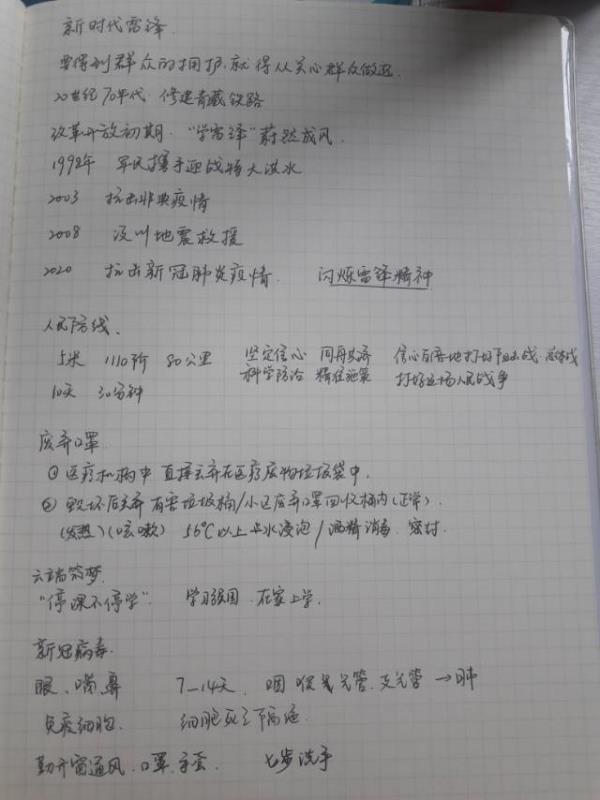 新时代雷锋.
要得到群众的拥护,就得从关心群众做起.
20世纪70年代. 修建青藏铁路
改革开放初期. "学雷锋"蔚然成风.
1998年 军民携手迎战特大洪水
2003 抗击非典疫情
2008 汶川地震救援
2020 抗击新冠肺炎疫情. 闪烁雷锋精神
人民防线.
5米 1110所 80公里 坚定信心 同舟共济 信心百倍地打好阻击战.总体战
科学防治 精准施策 打好这场人民战争
10天 30分钟
废弃口罩
① 医疗机构中 直接丢弃在医疗废物垃圾袋中.
② 毁坏后丢弃 有害垃圾桶/小区废弃口罩回收桶内(正常).
(发热)(咳嗽) 56℃以上 水浸泡/酒精消毒. 密封.
云端筑梦.
"停课不停学". 学习强国. 在家上学.
新冠病毒.
眼、嘴、鼻 7—14天. 咽 喉 气管.支气管 → 肺
免疫细胞. 细胞死亡
勤开窗通风.口罩.手套. 七步洗手